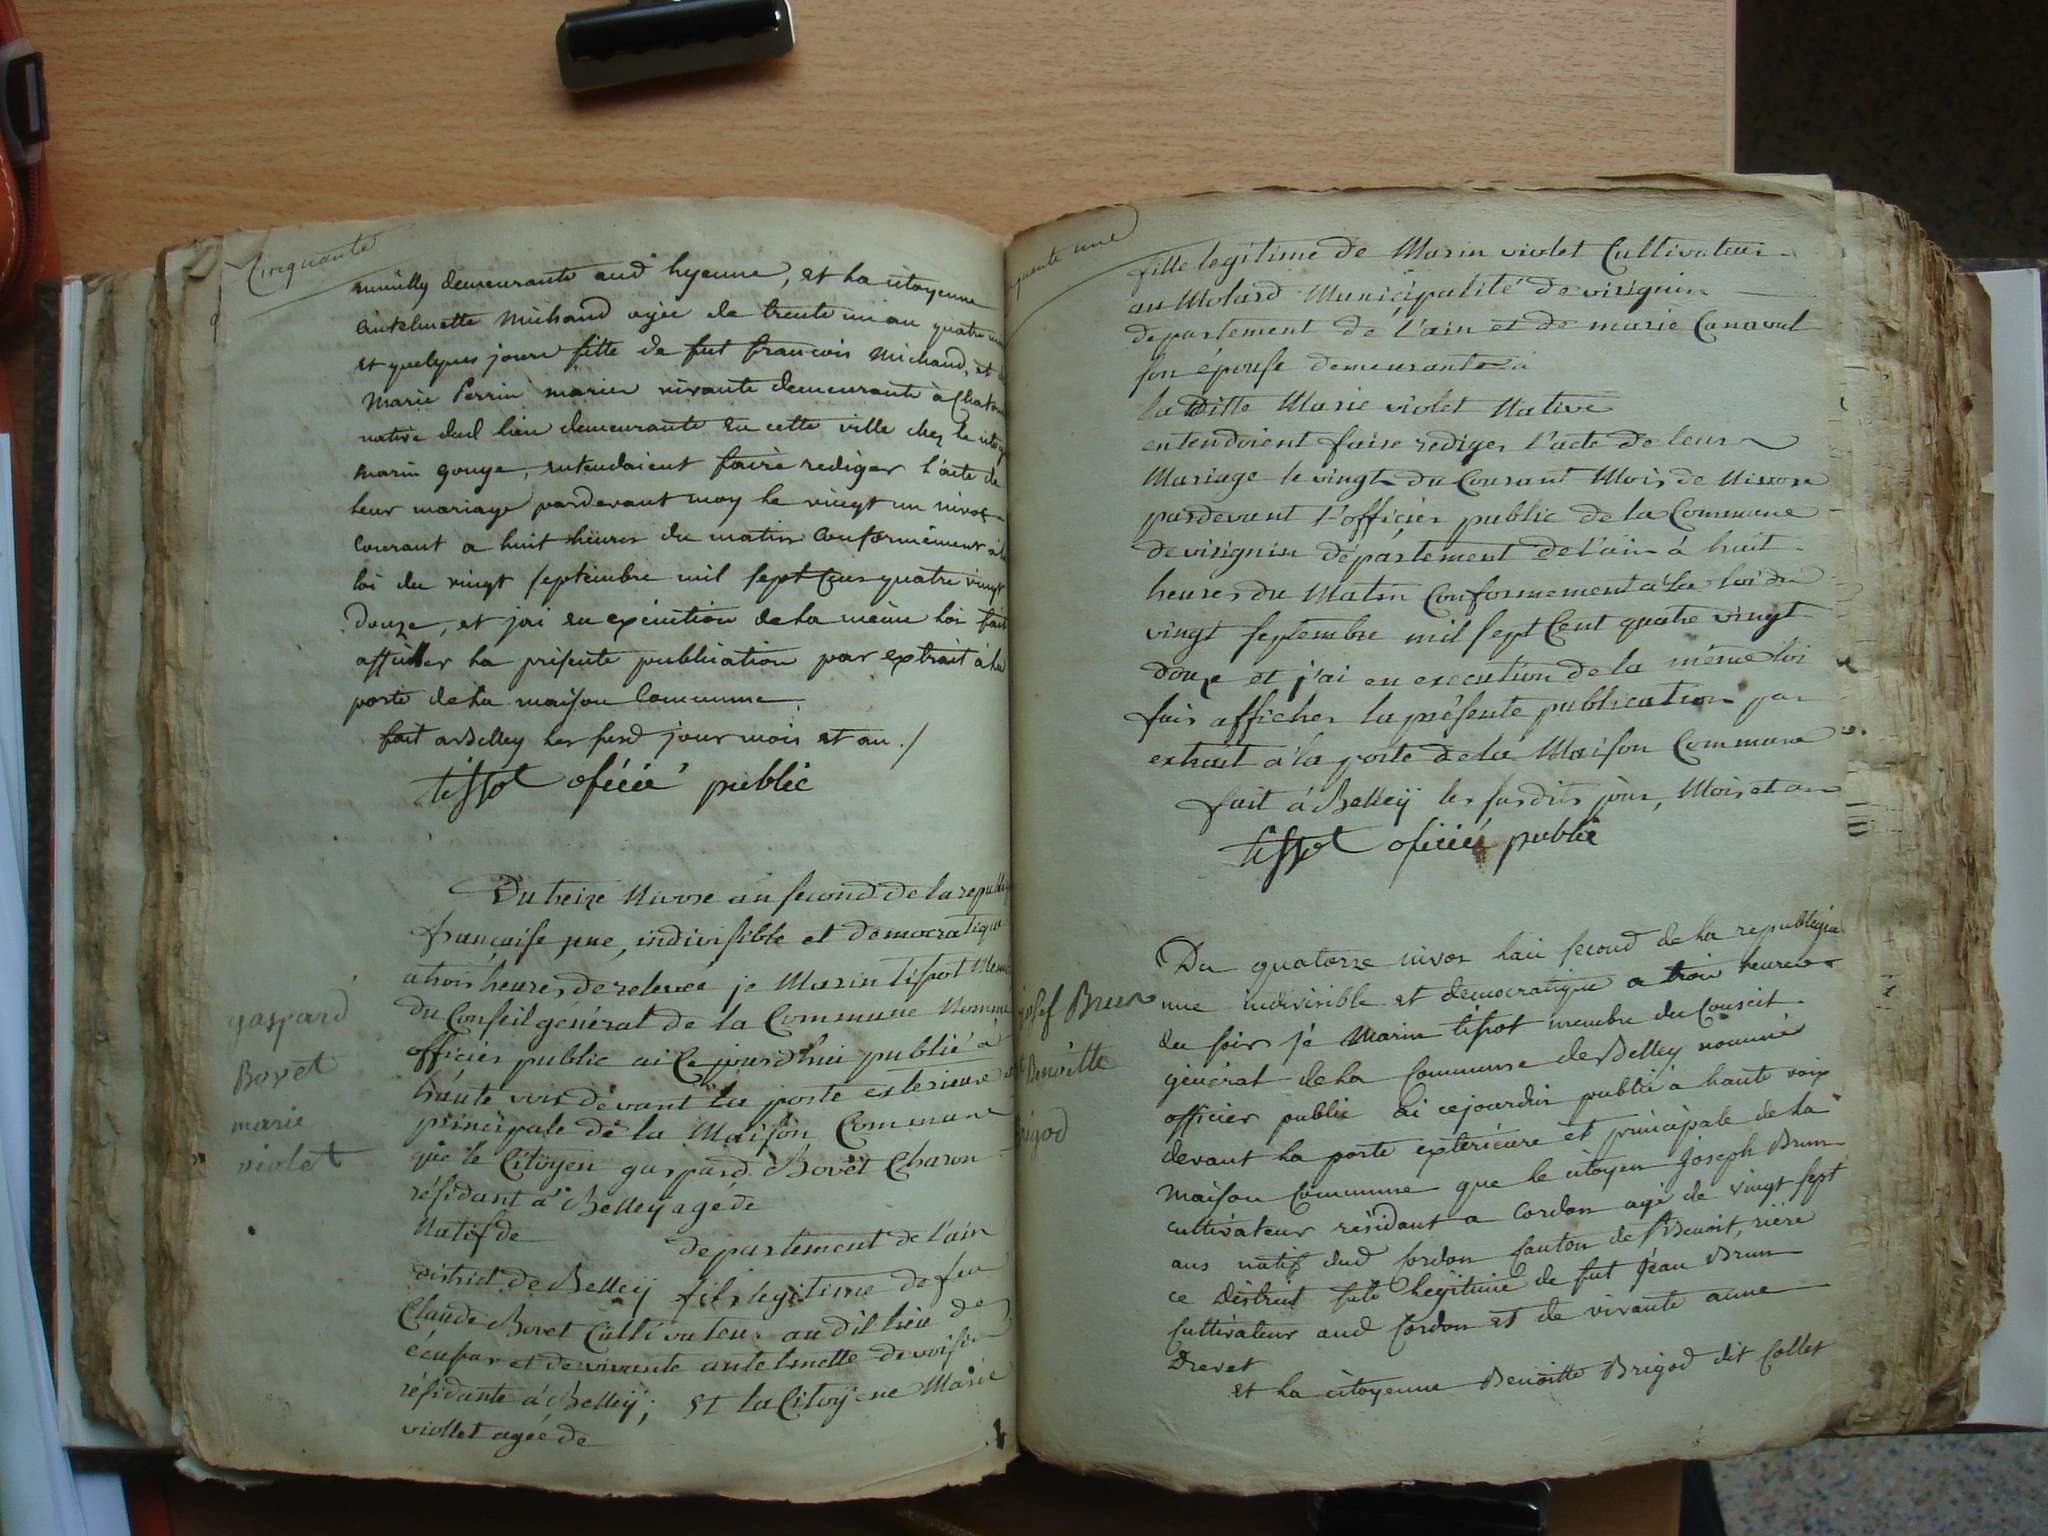 Cinquante
demeurante aud hyenne, et la citoyenne
antelmette Michaud agée de trente un an quatre
et quelques jours fille de fut francois Michaud, et
Marie Perrin vivante demeurante à
native dud lieu demeurante en cette ville chez le
Marin gouge, entendaient faire rediger l'acte de
leur mariage pardevant moy le vingt un nivos
courant a huit heures du matin conformement à la
loi du vingt septembre mil sept cens quatre vingt
Douze, et jai en execution de la meme loi fait
afficher la presente publication par extrait à la
porte de la maison Commune
fait a Belley les susd jour mois et an ./
tissot oficié public
Du treize Nivose an second de la republi
française, une, indivisible et democratique
a trois heures de relevée je Marin tissot
Du Conseil général de la Commune Nommé
officier public ai Ce jourd'hui publié à
haute voix devant la porte exterieure et
principale de la Maison Commune
que le Citoyen gaspard Bovet Charon
résidant à Belley agé de
Natif de departement de l'ain
district de Belley fils legitime de feu
Claude Bovet Cultivateur au dit lieu de
et de vivante antelmette
résidante à Belley; et la Citoyene Marie
viollet agée de
gaspard
Bovet
marie
violet
quante une
fille legitime de Marin violet Cultivateur
au Molard Municipalité de virignin
departement de l'ain et de marie Canaval
son épouse demeurante à
la ditte Marie violet Native
entendoient faire rediger l'acte de leur
Mariage le vingt du Courant Mois de Nivose
pardevant l'officier public de la Commune
de virignin département de l'ain à huit
heures du Matin Conformement à la loi du
vingt septembre mil sept Cent quatre vingt
douze et j'ai en execution de la même loi
fais afficher la présente publication par
extrait à la porte de la Maison Commune
fait à Belleÿ les susdits jour, Mois et an
tissot oficié public
Du quatorze nivos lan second de la republique
une indivisible et democratique a trois heures
du soir je Marin tissot membre du Conseil
general de la Commune de Belley nommé
officier public ai cejourdui publié à haute voix
devant la porte exterieure et principale de la
Maison Commune que le citoyen Joseph Brun
cultivateur résidant a Cordon agé de vingt sept
ans natif dud Cordon Canton de st Benoit, rière
ce District fils legitime de fut Jéan Brun
Cultivateur aud Cordon et de vivante anne
Drevet
et la citoyenne Benoitte Brigod dit Collet
josef Brun
et Benoitte
Brigod